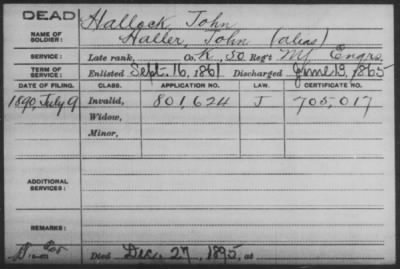 DEAD
Hallock, John
NAME OF SOLDIER: Haller, John (alias)
SERVICE: Late rank, Co. K, 50 Reg't NY Engrs
TERM OF SERVICE: Enlisted Sept. 16, 1861 Discharged June 13, 1865
DATE OF FILING. CLASS. APPLICATION NO. LAW. CERTIFICATE NO.
1890, July 9 Invalid, 801624 J 705,017
Widow,
Minor,
ADDITIONAL SERVICES:
REMARKS:
Died Dec. 27, 1895, at